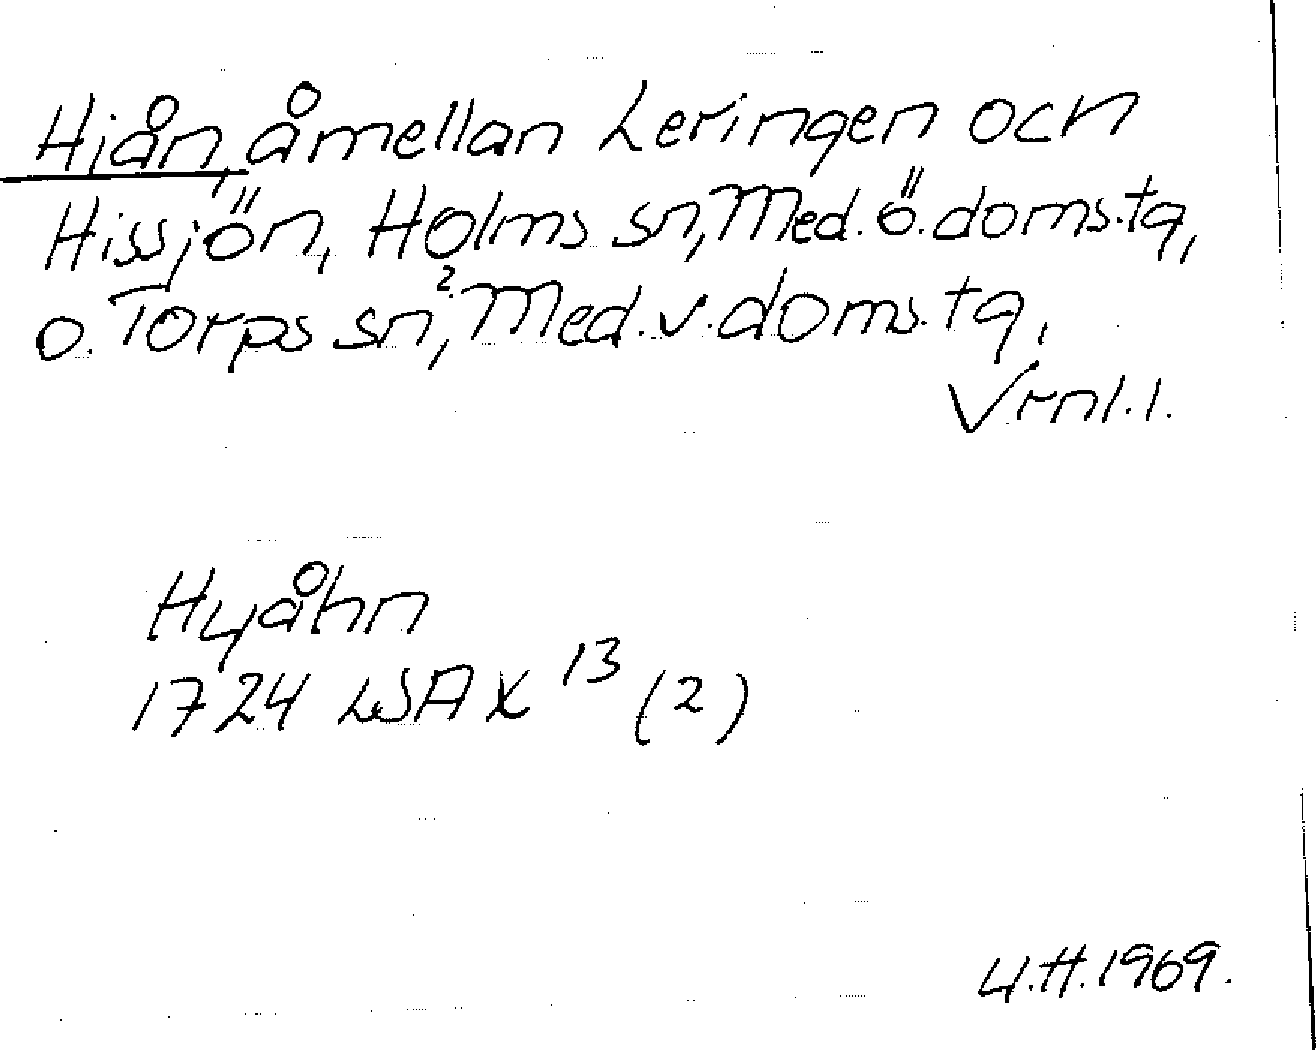 Hiån, å mellan Leringen och
Hissjön, Holms sn, Med. ö. doms. tg,
o. Torps sn,? Med. v. doms. tg,
Vrnl. l.
Hyåhn
1724 LSA X 13 (2)
U.H. 1969.